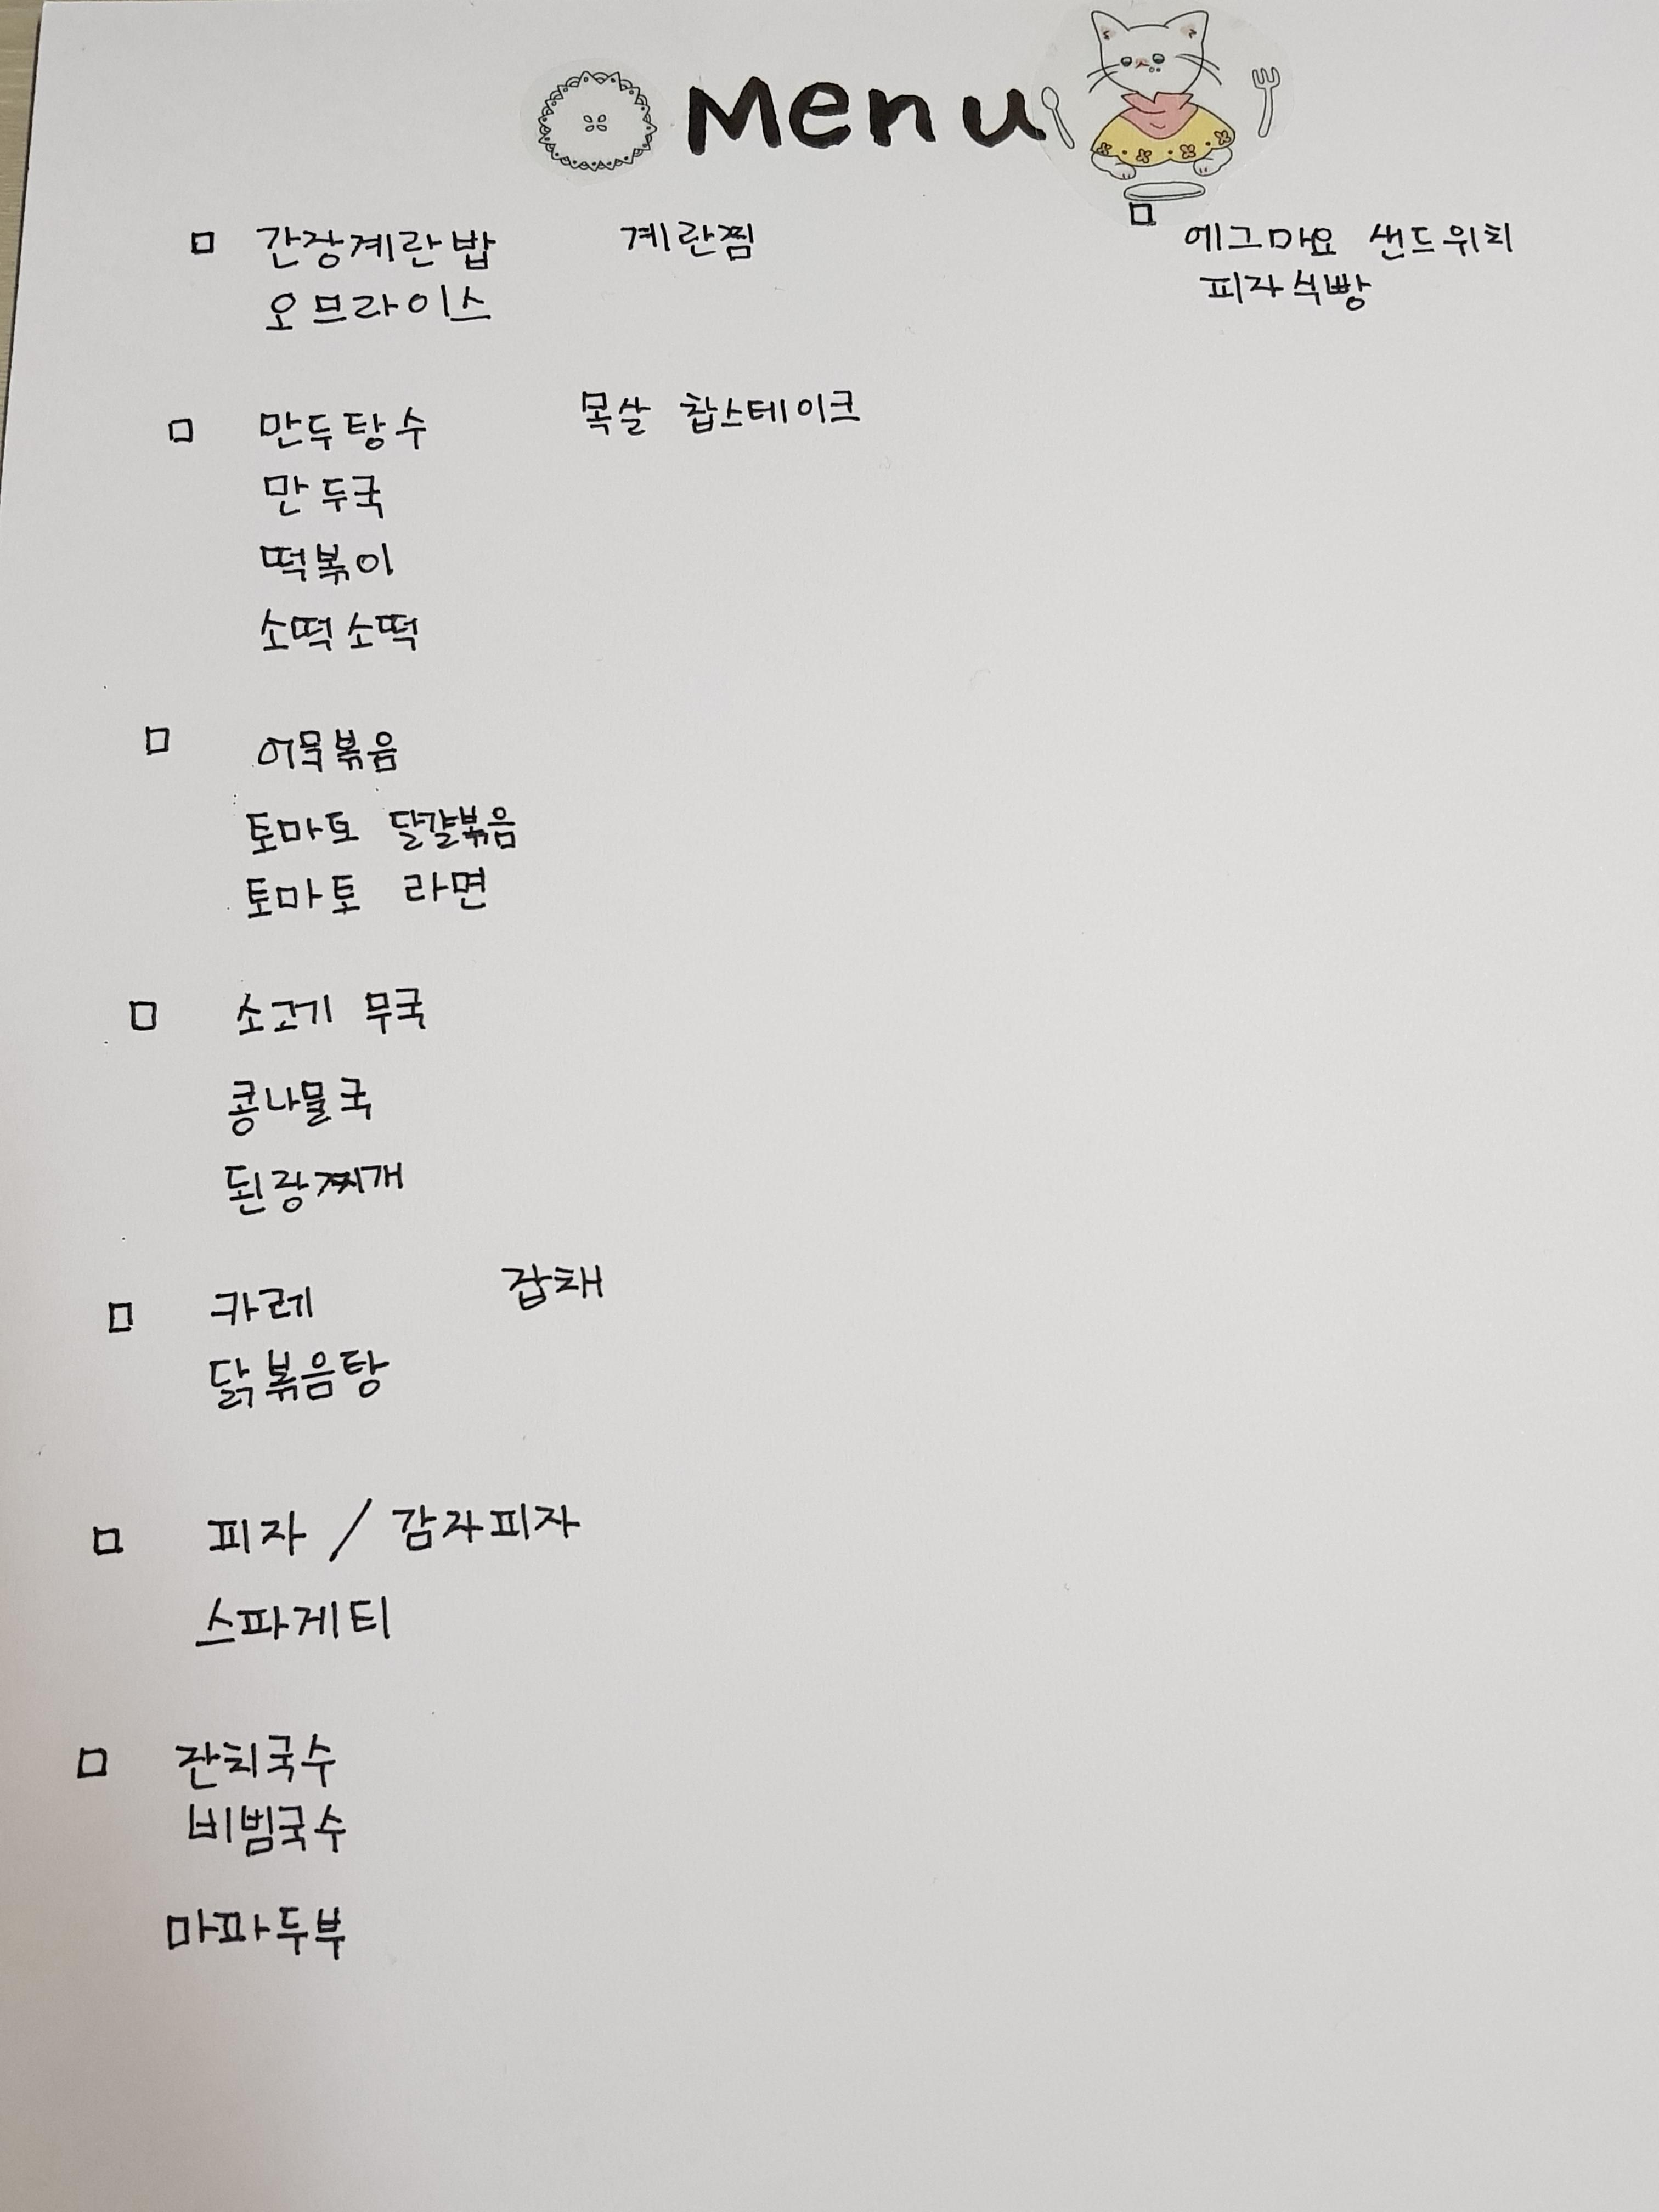 Menu
□ 간장계란밥 계란찜
오므라이스
□ 에그마요 샌드위치
피자식빵
□ 만두탕수 목살 찹스테이크
만두국
떡볶이
소떡소떡
□ 어묵볶음
토마토 달걀볶음
토마토 라면
□ 소고기 무국
콩나물국
된장찌개
□ 카레 잡채
닭볶음탕
□ 피자 / 감자피자
스파게티
□ 잔치국수
비빔국수
마파두부